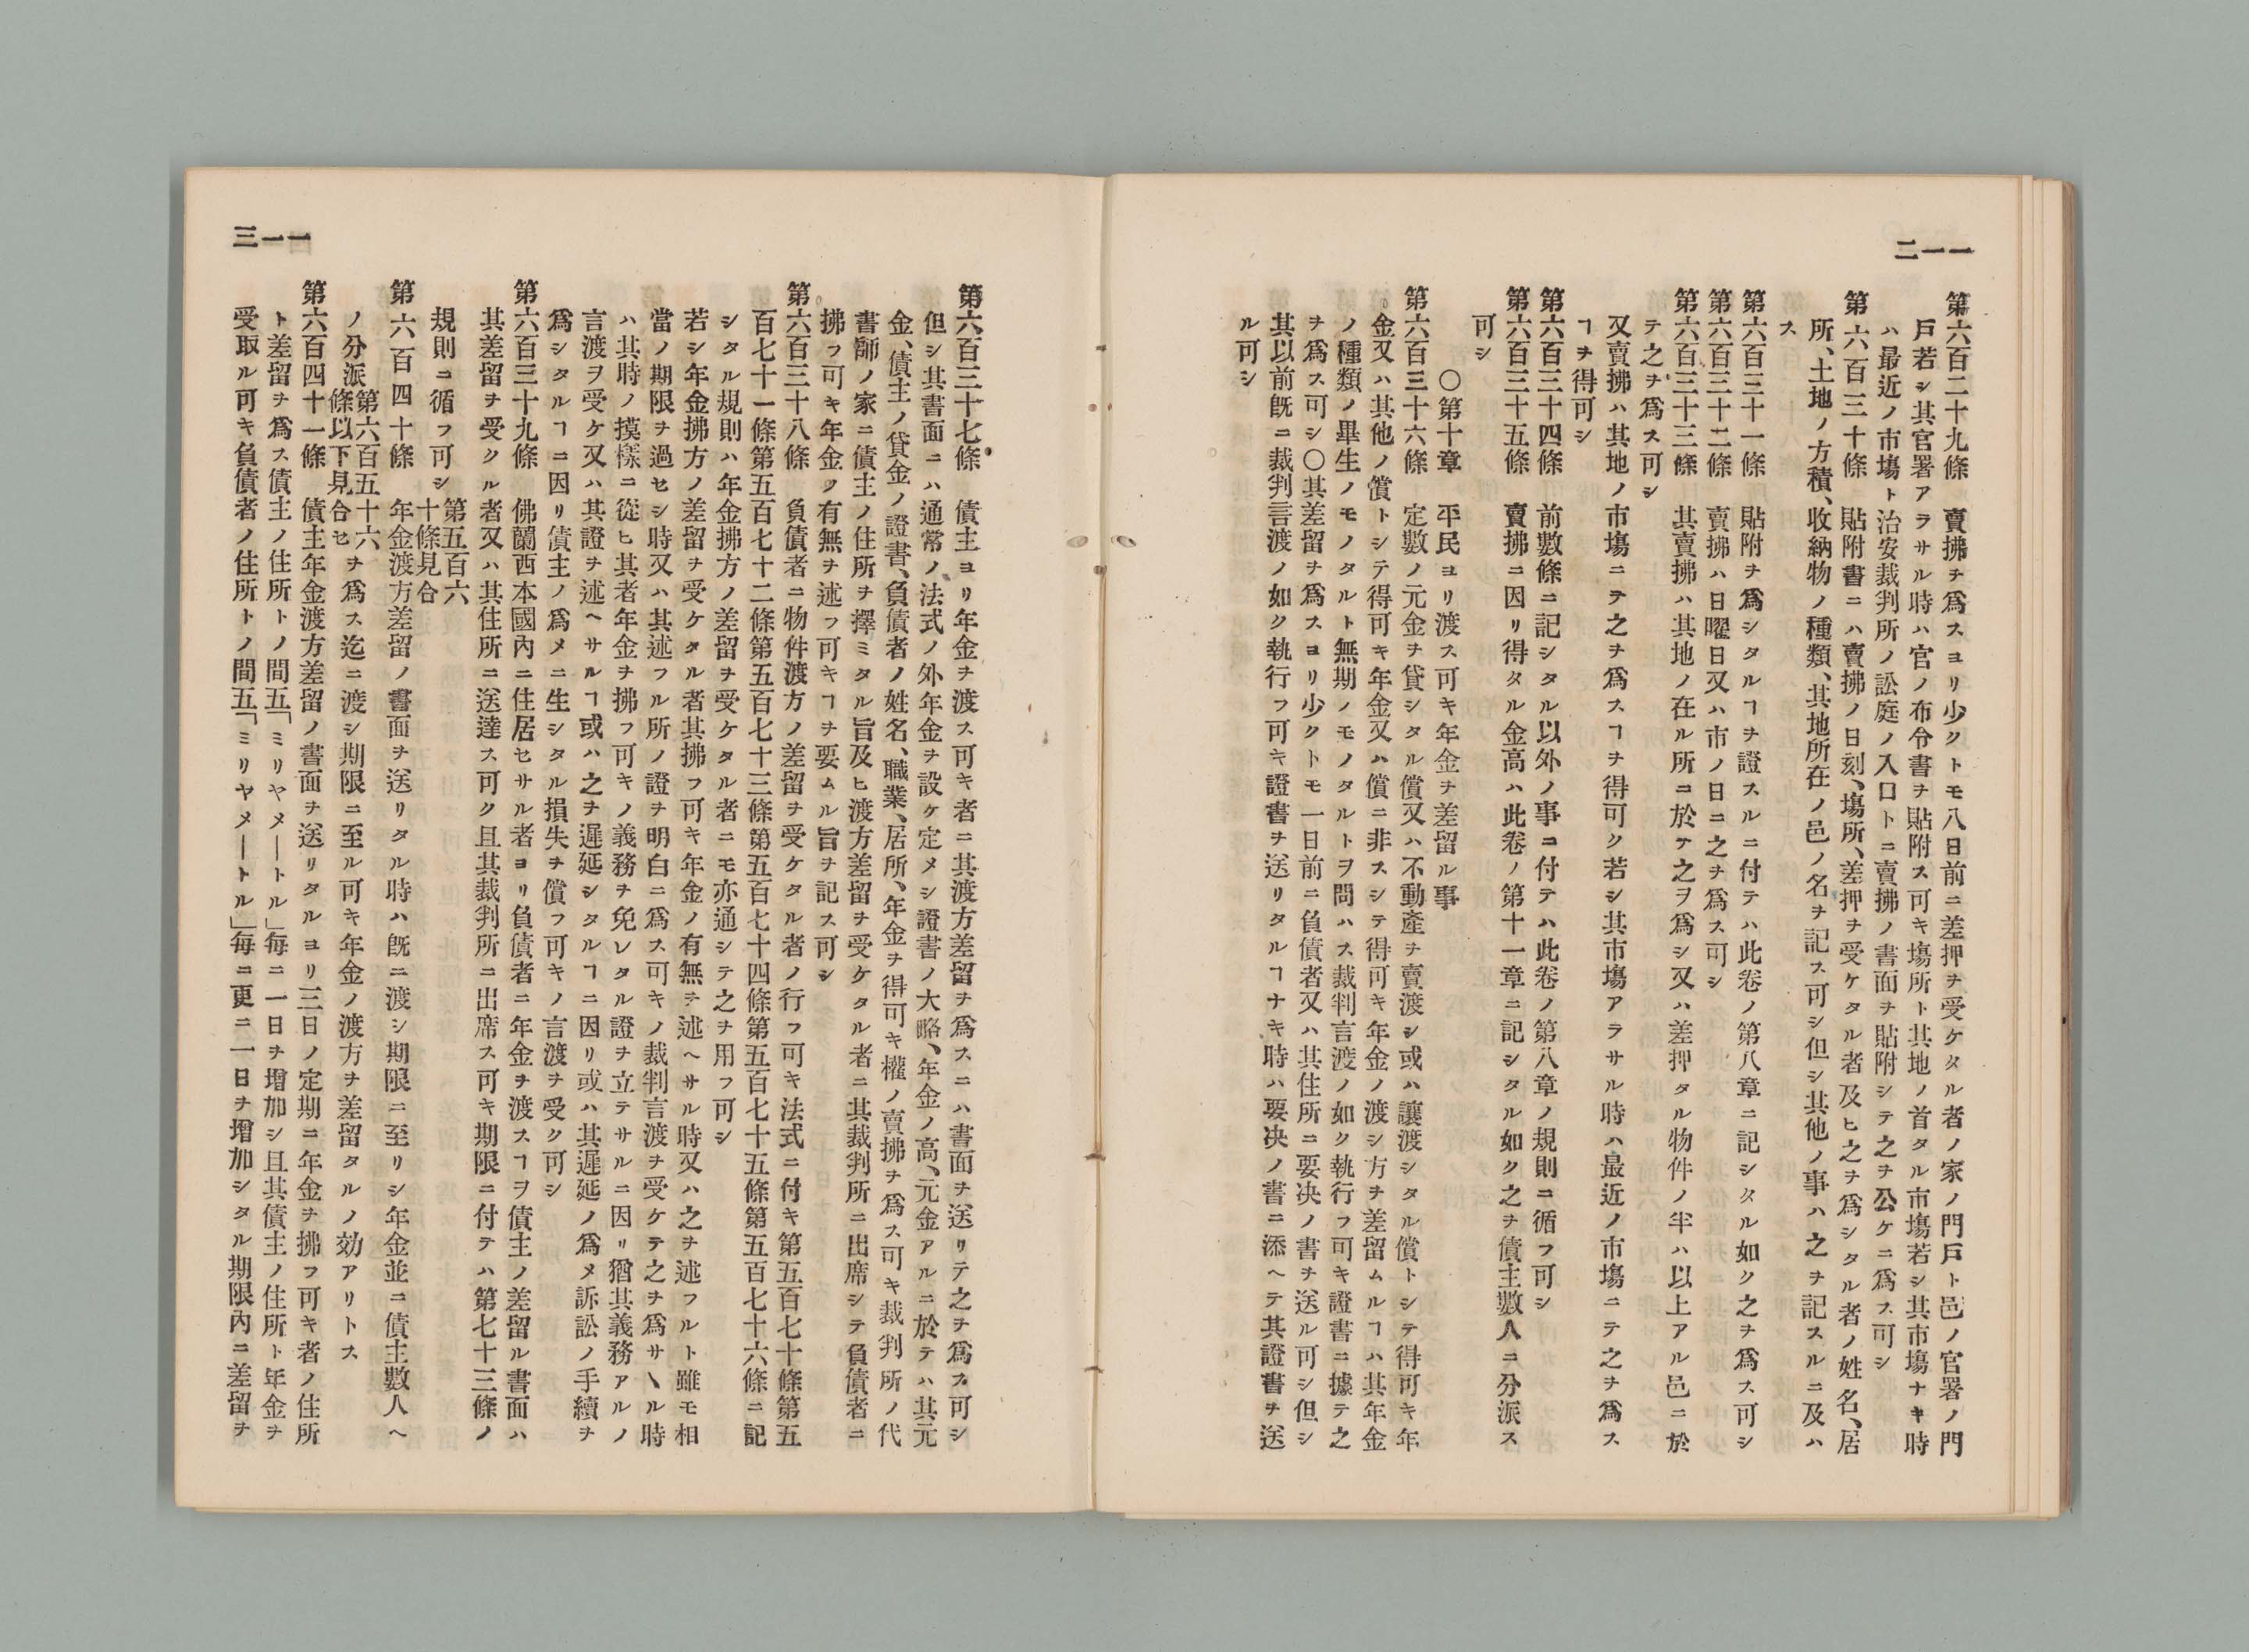 一一二
第六百二十九條　賣拂ヲ爲スヨリ少クトモ八日前ニ差押ヲ受ケタル者ノ家ノ門戸ト邑ノ官署ノ門
戸若シ其官署アラサル時ハ官ノ布令書ヲ貼附ス可キ塲所ト其地ノ首タル市塲若シ其市塲ナキ時
ハ最近ノ市塲ト治安裁判所ノ訟庭ノ入口トニ賣拂ノ書面ヲ貼附シテ之ヲ公ケニ爲ス可シ
第六百三十條　貼附書ニハ賣拂ノ日刻、塲所、差押ヲ受ケタル者及ヒ之ヲ爲シタル者ノ姓名、居
所、土地ノ方積、收納物ノ種類、其地所在ノ邑ノ名ヲ記ス可シ但シ其他ノ事ハ之ヲ記スルニ及ハ
ス
第六百三十一條　貼附ヲ爲シタルヿヲ證スルニ付テハ此卷ノ第八章ニ記シタル如ク之ヲ爲ス可シ
第六百三十二條　賣拂ハ日曜日又ハ市ノ日ニ之ヲ爲ス可シ
第六百三十三條　其賣拂ハ其地ノ在ル所ニ於テ之ヲ爲シ又ハ差押タル物件ノ半ハ以上アル邑ニ於
テ之ヲ爲ス可シ
又賣拂ハ其地ノ市塲ニテ之ヲ爲スヿヲ得可ク若シ其市塲アラサル時ハ最近ノ市塲ニテ之ヲ爲ス
ヿヲ得可シ
第六百三十四條　前數條ニ記シタル以外ノ事ニ付テハ此卷ノ第八章ノ規則ニ循フ可シ
第六百三十五條　賣拂ニ因リ得タル金高ハ此卷ノ第十一章ニ記シタル如ク之ヲ債主數人ニ分派ス
可シ
〇第十章　平民ヨリ渡ス可キ年金ヲ差留ル事
第六百三十六條　定數ノ元金ヲ貸シタル償又ハ不動產ヲ賣渡シ或ハ讓渡シタル償トシテ得可キ年
金又ハ其他ノ償トシテ得可キ年金又ハ償ニ非スシテ得可キ年金ノ渡シ方ヲ差留ムルヿハ其年金
ノ種類ノ畢生ノモノタルト無期ノモノタルトヲ問ハス裁判言渡ノ如ク執行フ可キ證書ニ據テ之
ヲ爲ス可シ〇其差留ヲ爲スヨリ少クトモ一日前ニ負債者又ハ其住所ニ要决ノ書ヲ送ル可シ但シ
其以前既ニ裁判言渡ノ如ク執行フ可キ證書ヲ送リタルヿナキ時ハ要决ノ書ニ添ヘテ其證書ヲ送
ル可シ
一一三
第六百三十七條　債主ヨリ年金ヲ渡ス可キ者ニ其渡方差留ヲ爲スニハ書面ヲ送リテ之ヲ爲ス可シ
但シ其書面ニハ通常ノ法式ノ外年金ヲ設ケ定メシ證書ノ大略、年金ノ高、元金アルニ於テハ其元
金、債主ノ貸金ノ證書、負債者ノ姓名、職業、居所、年金ヲ得可キ權ノ賣拂ヲ爲ス可キ裁判所ノ代
書師ノ家ニ債主ノ住所ヲ擇ミタル旨及ヒ渡方差留ヲ受ケタル者ニ其裁判所ニ出席シテ負債者ニ
拂フ可キ年金ノ有無ヲ述フ可キヿヲ要ムル旨ヲ記ス可シ
第六百三十八條　負債者ニ物件渡方ノ差留ヲ受ケタル者ノ行フ可キ法式ニ付キ第五百七十條第五
百七十一條第五百七十二條第五百七十三條第五百七十四條第五百七十五條第五百七十六條ニ記
シタル規則ハ年金拂方ノ差留ヲ受ケタル者ニモ亦通シテ之ヲ用フ可シ
若シ年金拂方ノ差留ヲ受ケタル者其拂フ可キ年金ノ有無ヲ述ヘサル時又ハ之ヲ述フルト雖モ相
當ノ期限ヲ過セシ時又ハ其述フル所ノ證ヲ明白ニ爲ス可キノ裁判言渡ヲ受ケテ之ヲ爲サヽル時
ハ其時ノ摸樣ニ從ヒ其者年金ヲ拂フ可キノ義務ヲ免レタル證ヲ立テサルニ因リ猶其義務アルノ
言渡ヲ受ケ又ハ其證ヲ述ヘサルヿ或ハ之ヲ遲延シタルヿニ因リ或ハ其遲延ノ爲メ訴訟ノ手續ヲ
爲シタルヿニ因リ債主ノ爲メニ生シタル損失ヲ償フ可キノ言渡ヲ受ク可シ
第六百三十九條　佛蘭西本國內ニ住居セサル者ヨリ負債者ニ年金ヲ渡スヿヲ債主ノ差留ル書面ハ
其差留ヲ受クル者又ハ其住所ニ送達ス可ク且其裁判所ニ出席ス可キ期限ニ付テハ第七十三條ノ
規則ニ循フ可シ　第五百六十條見合
第六百四十條　年金渡方差留ノ書面ヲ送リタル時ハ既ニ渡シ期限ニ至リシ年金並ニ債主數人ヘ
ノ分派　第六百五十六條以下見合セ　ヲ爲ス迄ニ渡シ期限ニ至ル可キ年金ノ渡方ヲ差留タルノ効アリトス
第六百四十一條　債主年金渡方差留ノ書面ヲ送リタルヨリ三日ノ定期ニ年金ヲ拂フ可キ者ノ住所
ト差留ヲ爲ス債主ノ住所トノ間五「ミリヤメートル」每ニ一日ヲ增加シ且其債主ノ住所ト年金ヲ
受取ル可キ負債者ノ住所トノ間五「ミリヤメートル」每ニ更ニ一日ヲ增加シタル期限內ニ差留ヲ